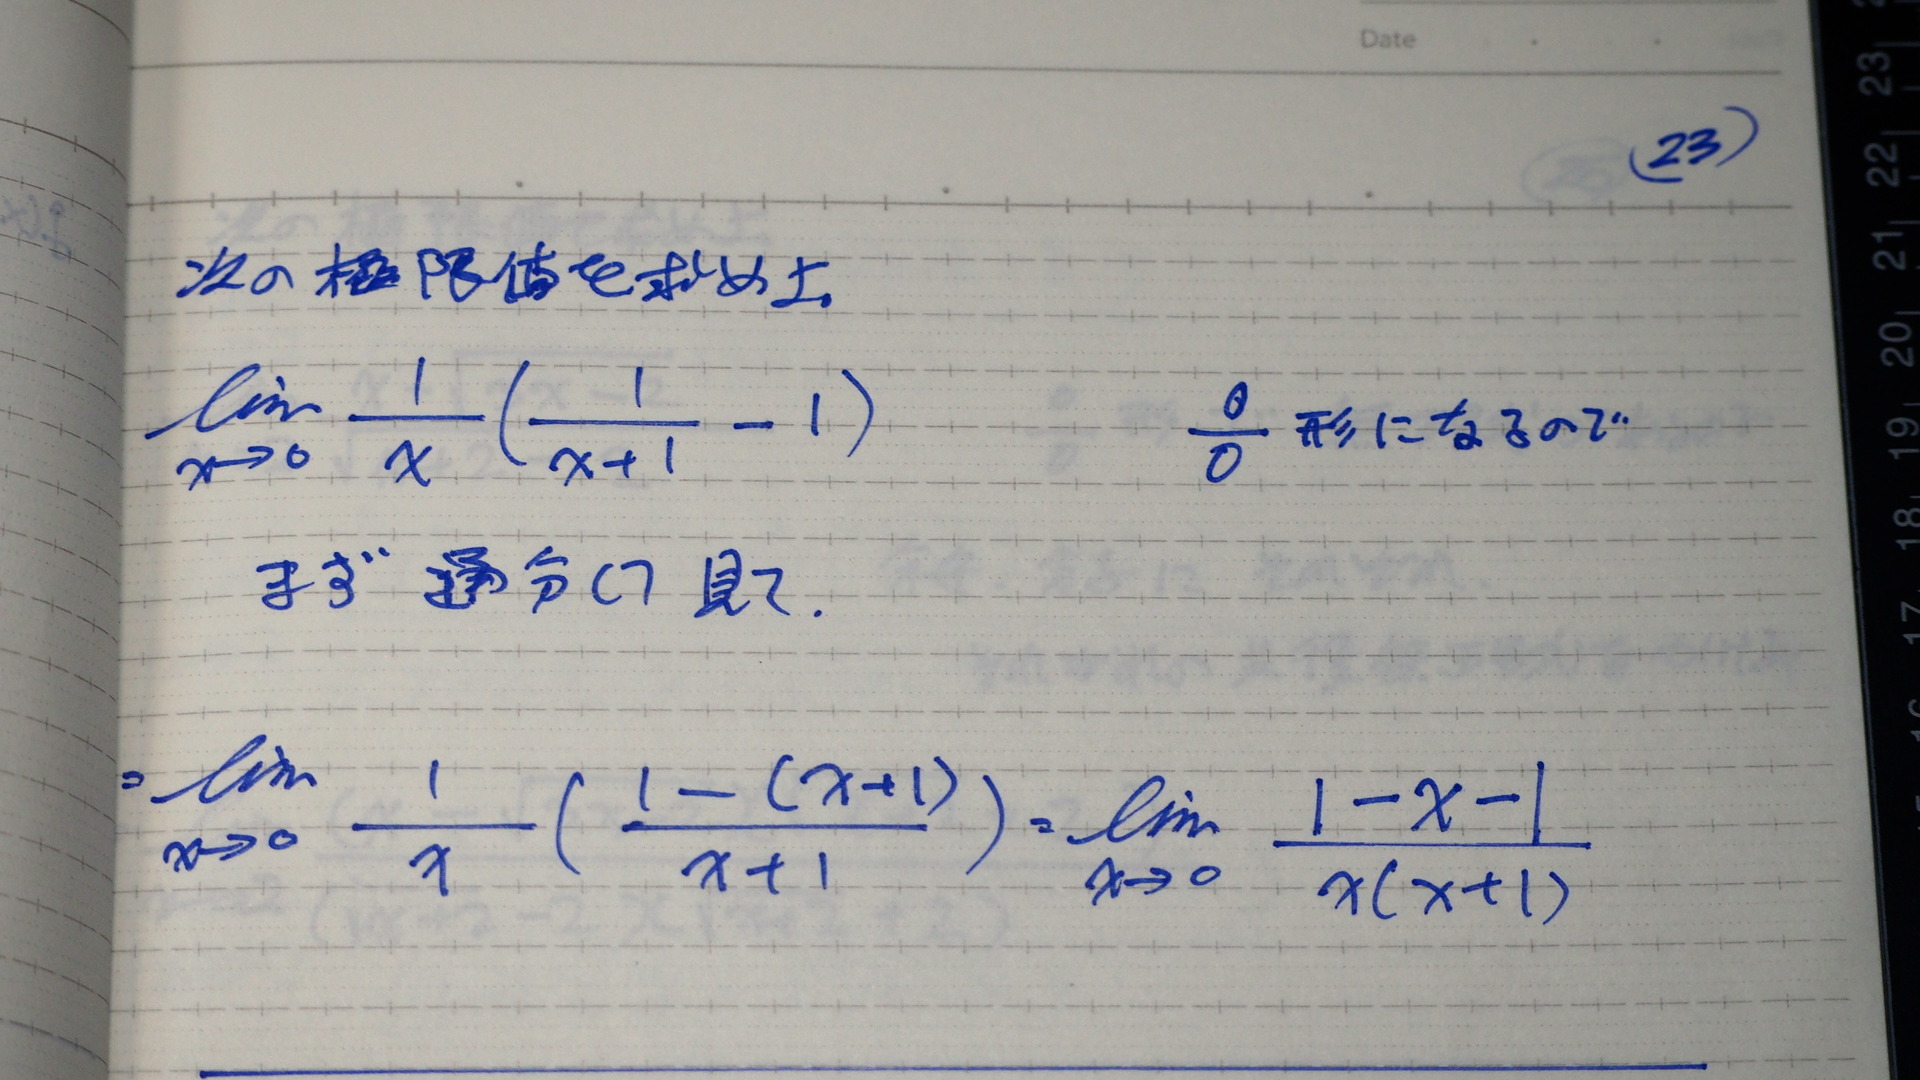 Date
(23)
次の極限値を求めよ。
lim x→0 1/x (1/(x+1) - 1) 0/0 形になるので
まず通分して見て.
= lim x→0 1/x ((1-(x+1))/(x+1)) = lim x→0 (1-x-1)/(x(x+1))
23
22
21
20
19
18
17
16